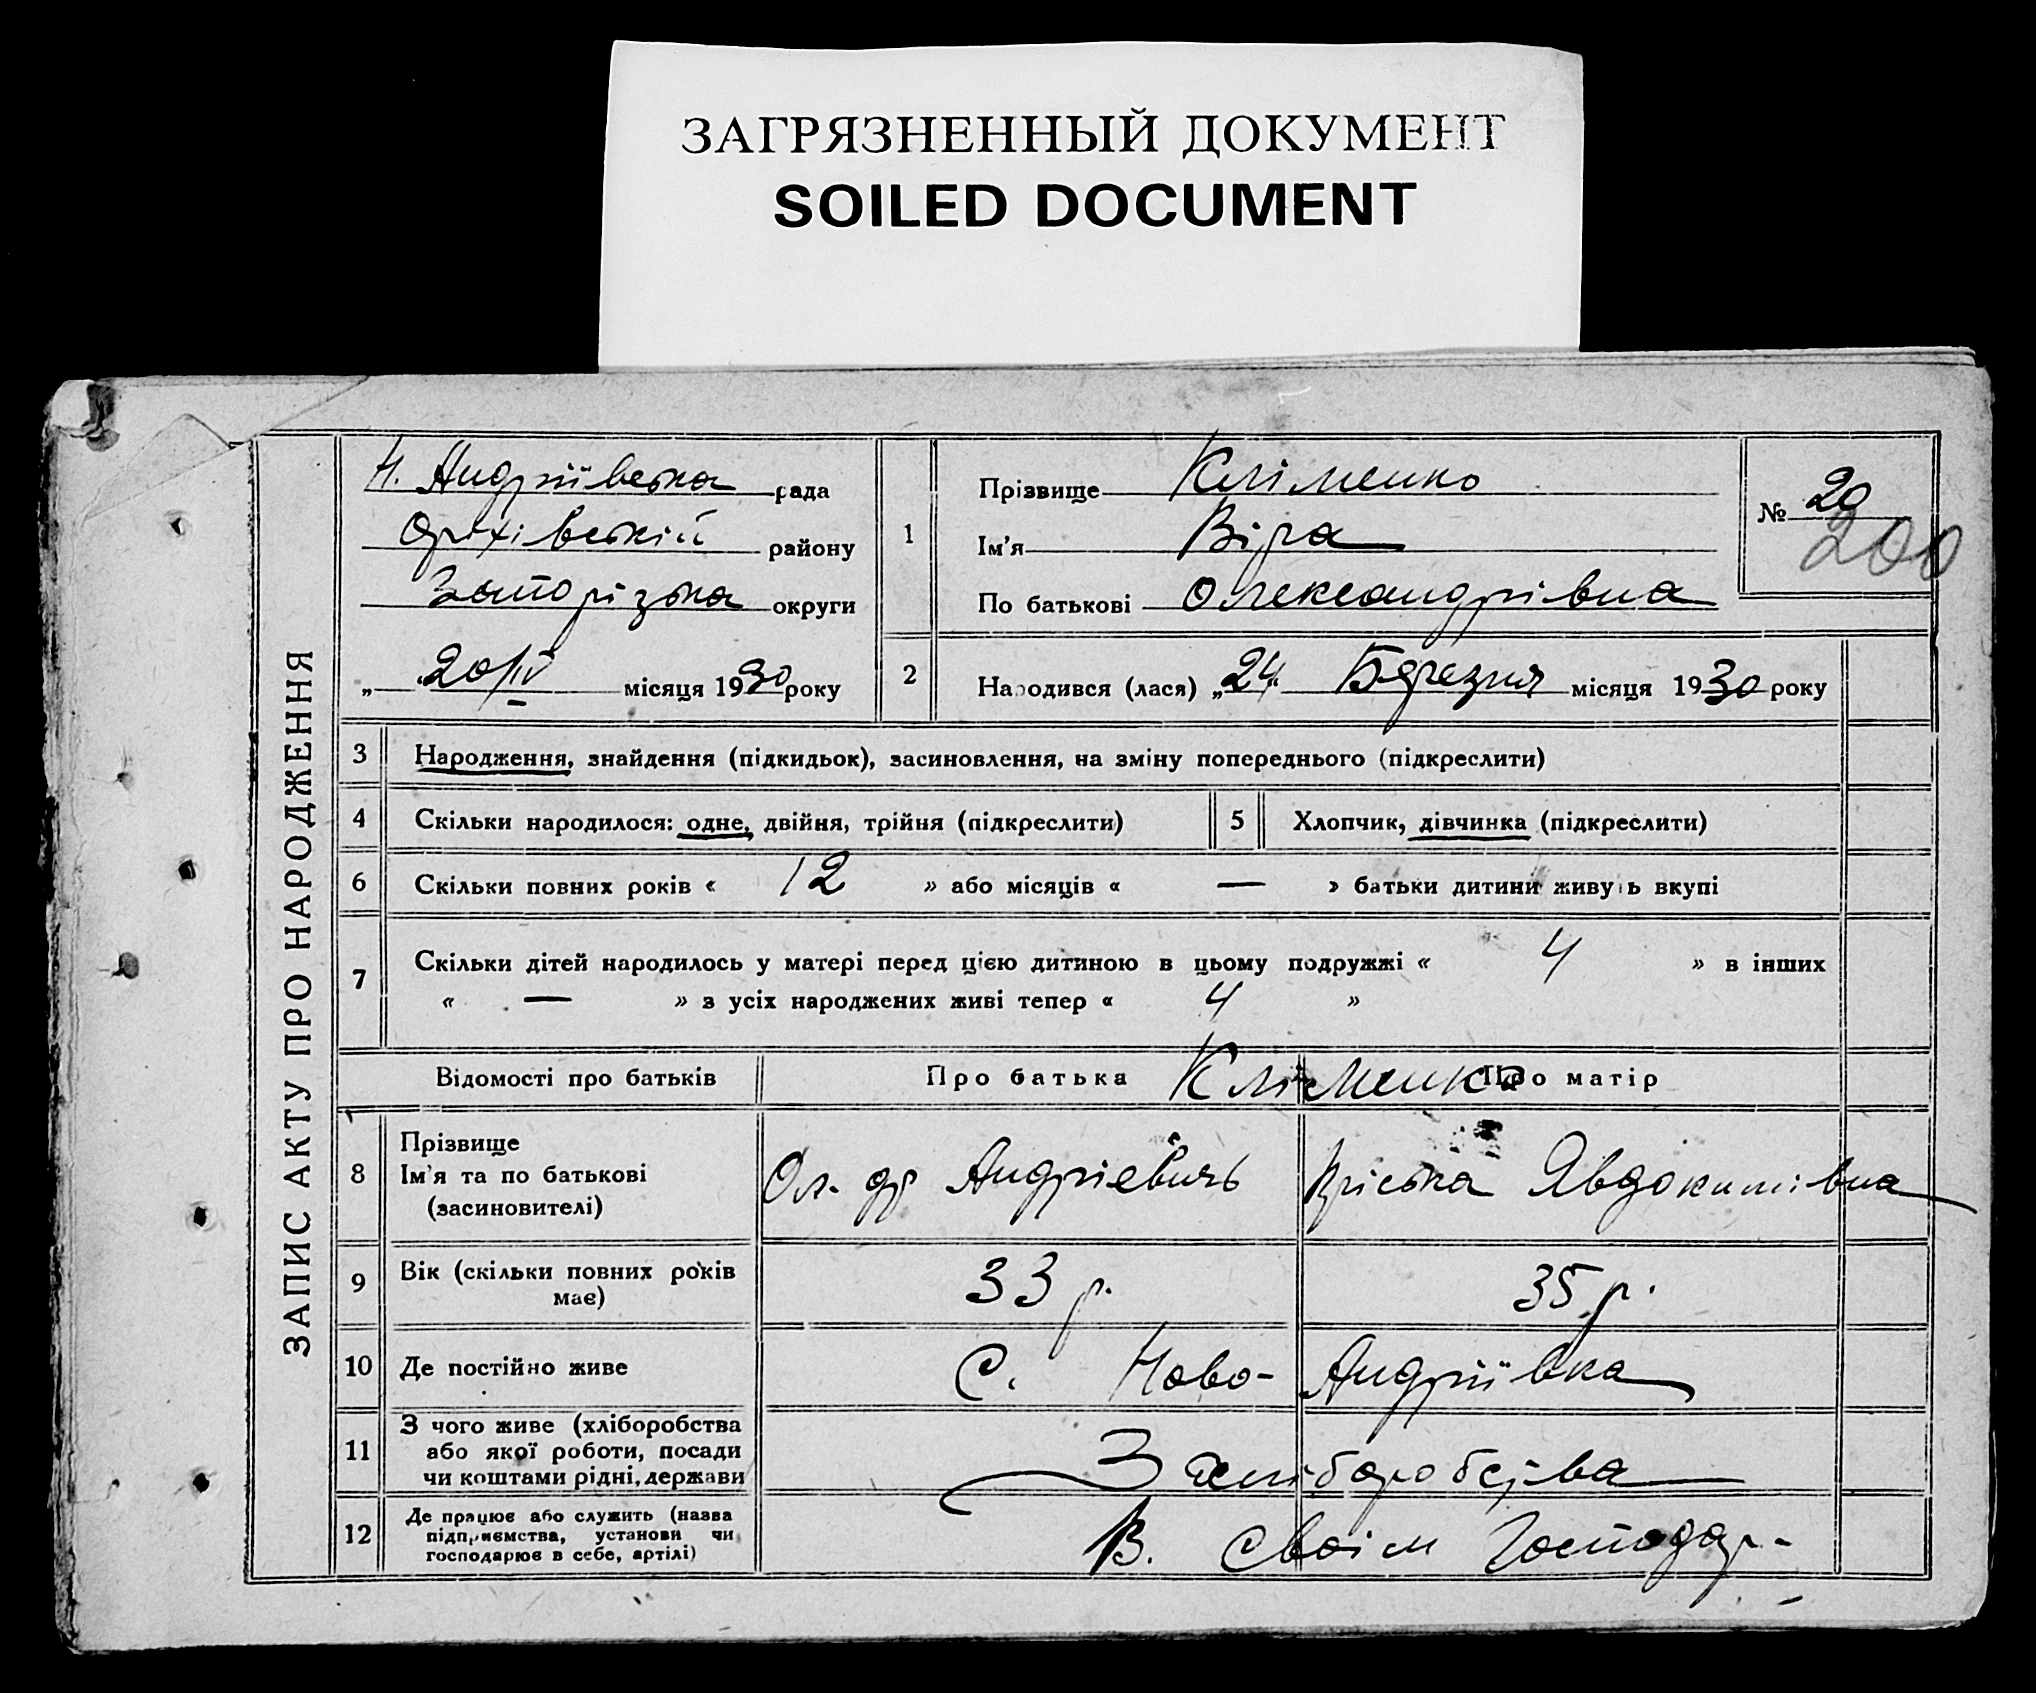 ЗАГРЯЗНЕННЫЙ ДОКУМЕНТ
SOILED DOCUMENT
ЗАПИС АКТУ ПРО НАРОДЖЕННЯ
Н. Андріївська рада
Оріхівський району
Запорізька округи
„ 20/IV місяця 1930 року
1
Прізвище Кліменко
Ім'я Віра
По батькові Олександрівна
№ 20
200
2
Народився (лася) „24" Березня місяця 1930 року
3 Народження, знайдення (підкидьок), засиновлення, на зміну попереднього (підкреслити)
4 Скільки народилося: одне, двійня, трійня (підкреслити) 5 Хлопчик, дівчинка (підкреслити)
6 Скільки повних років « 12 » або місяців « — » батьки дитини живуть вкупі
7 Скільки дітей народилось у матері перед цією дитиною в цьому подружжі « 4 » в інших
« — » з усіх народжених живі тепер « 4 »
Відомості про батьків Про батька Кліменко Про матір
8 Прізвище
Ім'я та по батькові
(засиновителі)
Ол-др Андрієвичь Явдокимівна
9 Вік (скільки повних років
має)
33 р. 35 р.
10 Де постійно живе С. Ново-Андріївка
11 З чого живе (хліборобства
або якої роботи, посади
чи коштами рідні, держави
З хліборобства
12 Де працює або служить (назва
підприємства, установи чи
господарює в себе, артілі)
В. Своім Господар-